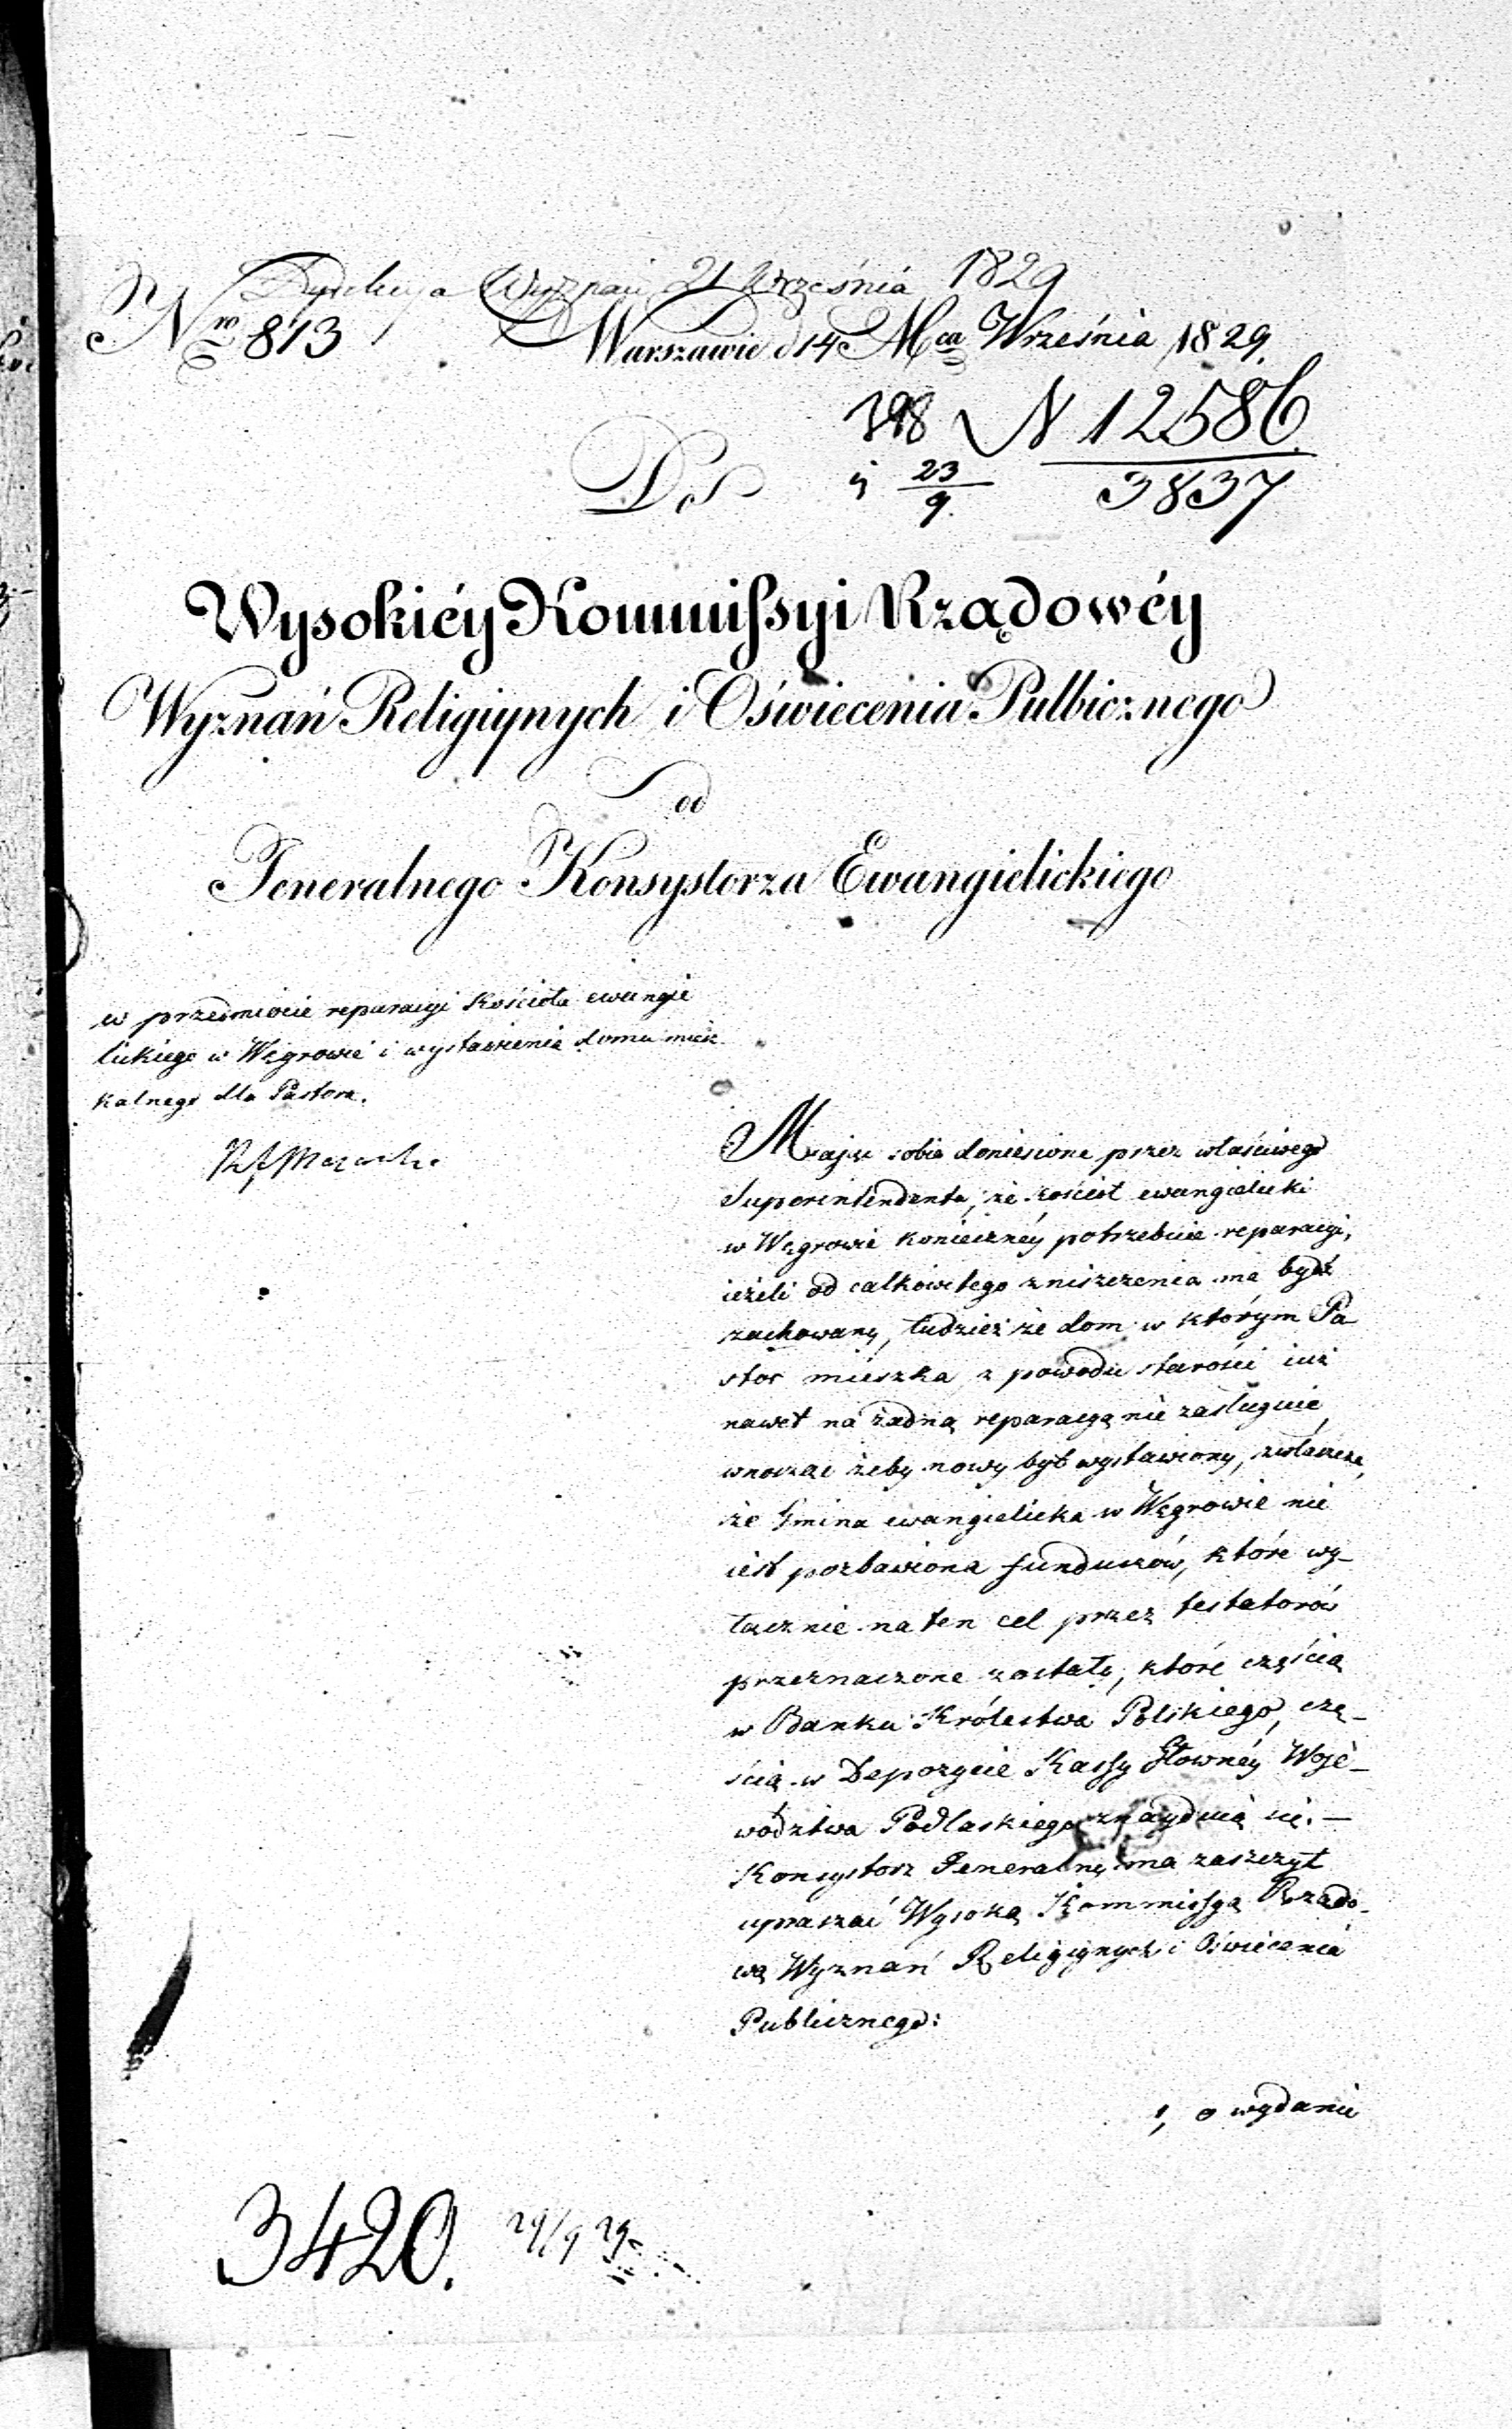 Dyrekcya Wyznań 21 Września 1829
Nro 813
Warszawie d 14 Mca Września 1829.
N 12586.
3837
Do
23
9.
Wysokiéy Kommissyi Rządowéy
Wyznań Religiynych i Oświecenia Pulbicznego
od
Jeneralnego Konsystorza Ewangielickiego
w przedmiocie reparacyi Kościoła ewangie
lickiego w Węgrowie i wystawienia domu miesz
kalnego dla Pastora.
Maiąc sobie doniesione przez właściwego
Superintendenta, że kościoł ewangielicki
w Węgrowie konieczney potrzebuie reparacyi,
ieżeli od całkowitego zniszczenia ma bydź
zachowany, tudzież że dom w którym Pa
stor mieszka z powodu starości iuż
nawet na żadną reparacyą nie zasługuie,
wnosząc żeby nowy był wystawiony, zwłaszcza,
że Gmina ewangielicka w Węgrowie nie
iest pozbawiona funduszów, które wy-
łącznie na ten cel przez testatorów
przeznaczone zostały, które częścią
w Banku Królestwa Polskiego, czę-
ścią w Depozycie Kassy Głownéy Woje-
wództwa Podlaskiego znayduią się. —
Konsystorz Jeneralny ma zaszczyt
upraszać Wysoką Kommissyą Rządo-
wą Wyznań Religiynych i Oświecenia
Publicznego:
1, o wydanie
3420. 29/9 29